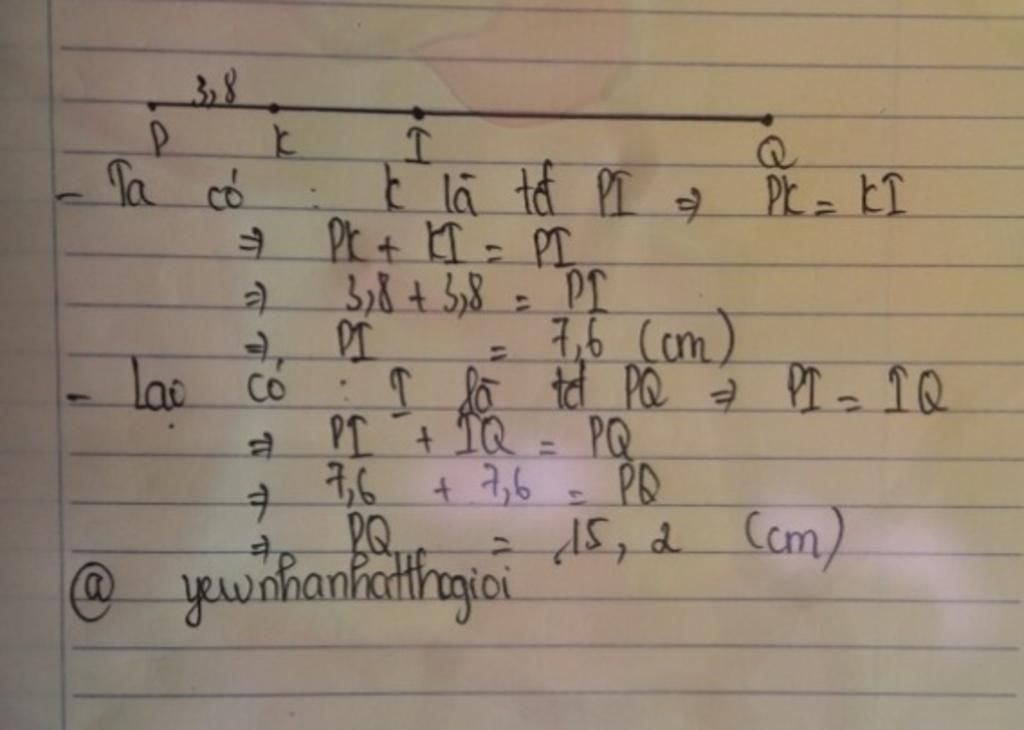 3,8
P K I Q
- Ta có : K là tđ PI ⇒ PK = KI
⇒ PK + KI = PI
⇒ 3,8 + 3,8 = PI
⇒ PI = 7,6 (cm)
- Lại có : I là tđ PQ ⇒ PI = IQ
⇒ PI + IQ = PQ
⇒ 7,6 + 7,6 = PQ
⇒ PQ = 15,2 (cm)
@ yewnhanhatthogioi